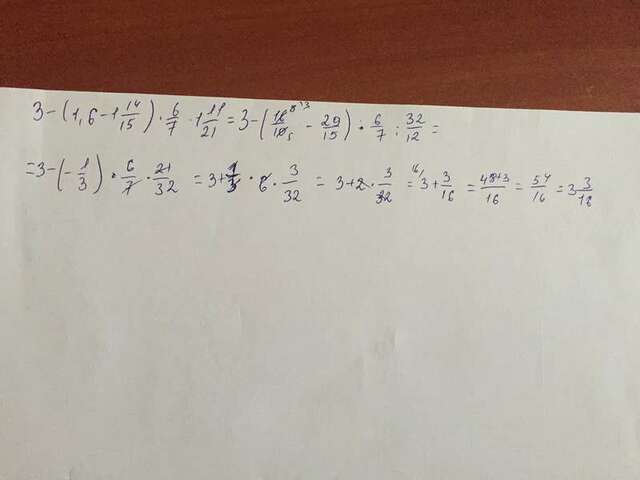 3-(1,6-1 14/15)·6/7·1 11/21=3-(16/10 8/5 ^3-29/15)·6/7:32/12=
=3-(-1/3)·6/7·21/32=3+1/3·6·3/32=3+2·3/32=^16/3+3/16=48+3/16=54/16=3 3/18